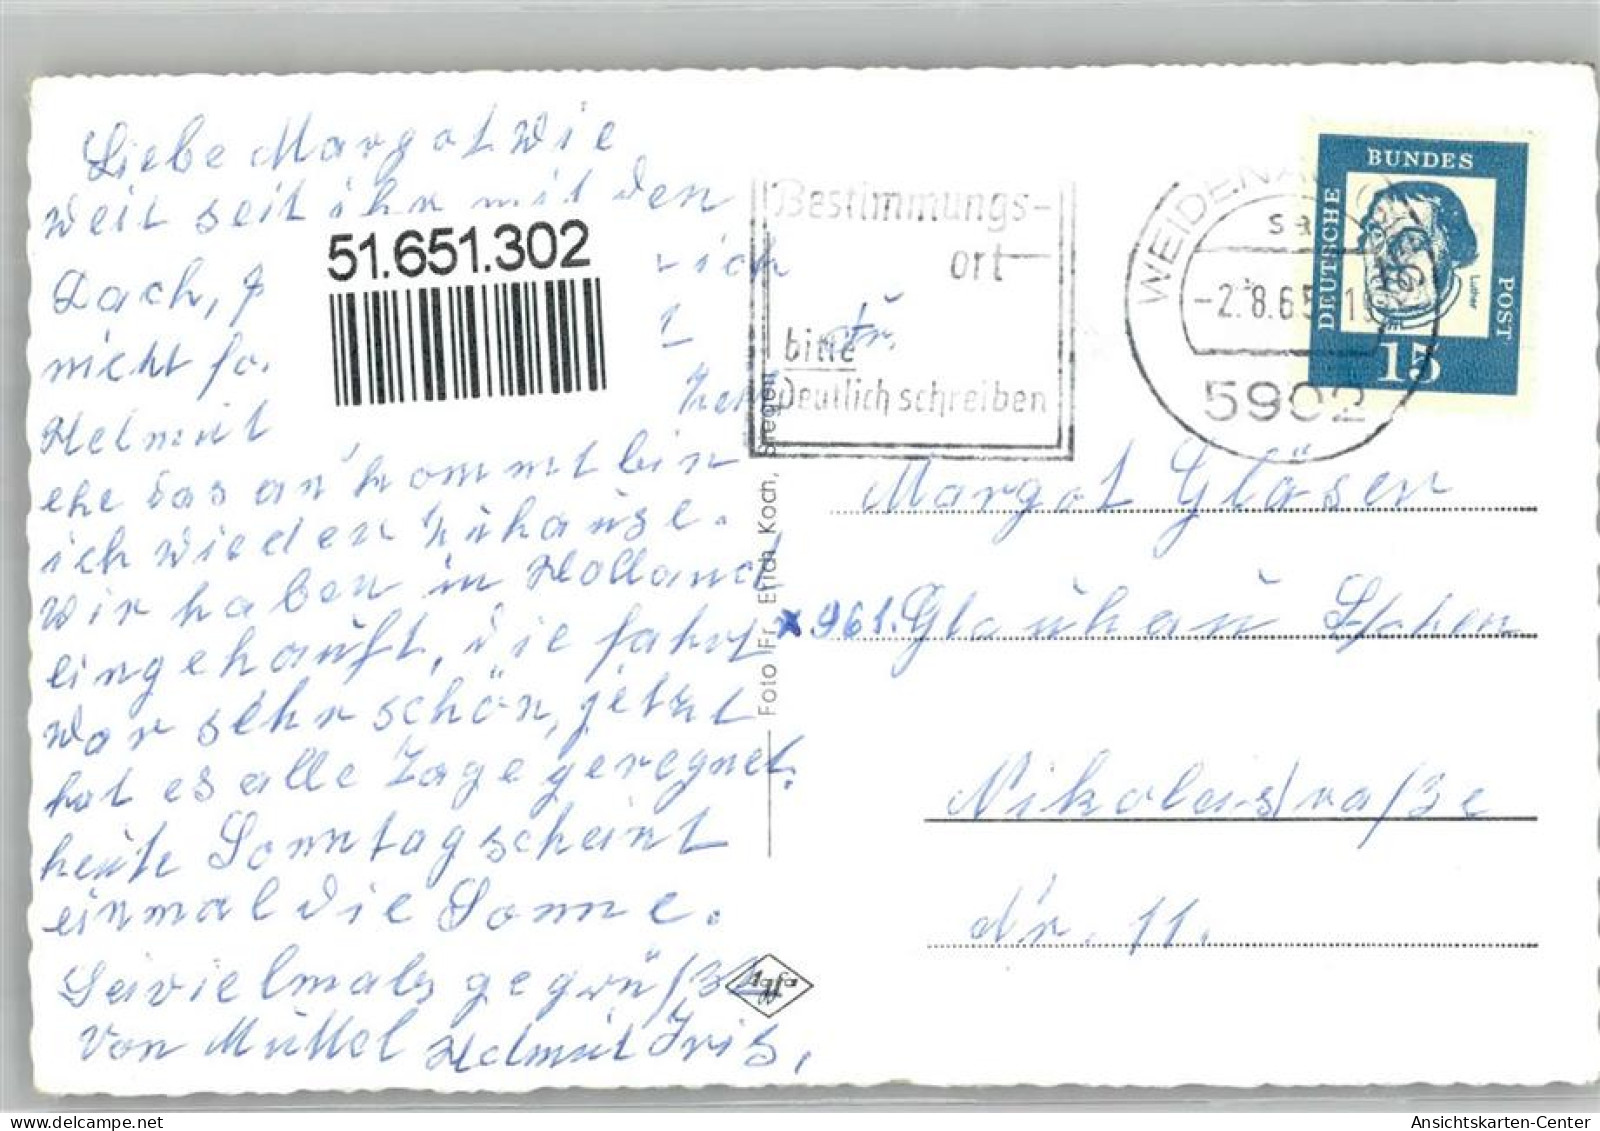 Liebe Margot Wie
weit seit ihr mit den
Dach,
nicht
Helmut
ehe das an kommt bin
ich wieder zuhause.
Wir haben in Holland
eingekauft, die fahrt
war sehr schön, jetzt
hat es alle Tage geregnet.
heute Sonntag scheint
einmal die Sonne.
Seivielmals gegrüßt
von Muttel Helmut Iris.
51.651.302
Bestimmungs-
ort
bitte
deutlich schreiben
WEIDENAU
-2.8.65
5902
DEUTSCHE
BUNDES
POST
Luther
15
Foto Fr. Erich Koch, Siegen
Agfa
Fr.
Margot Gläser
x 961. Glauchau Sachen
Nikoleistraße
Nr. 11.
Ansichtskarten-Center